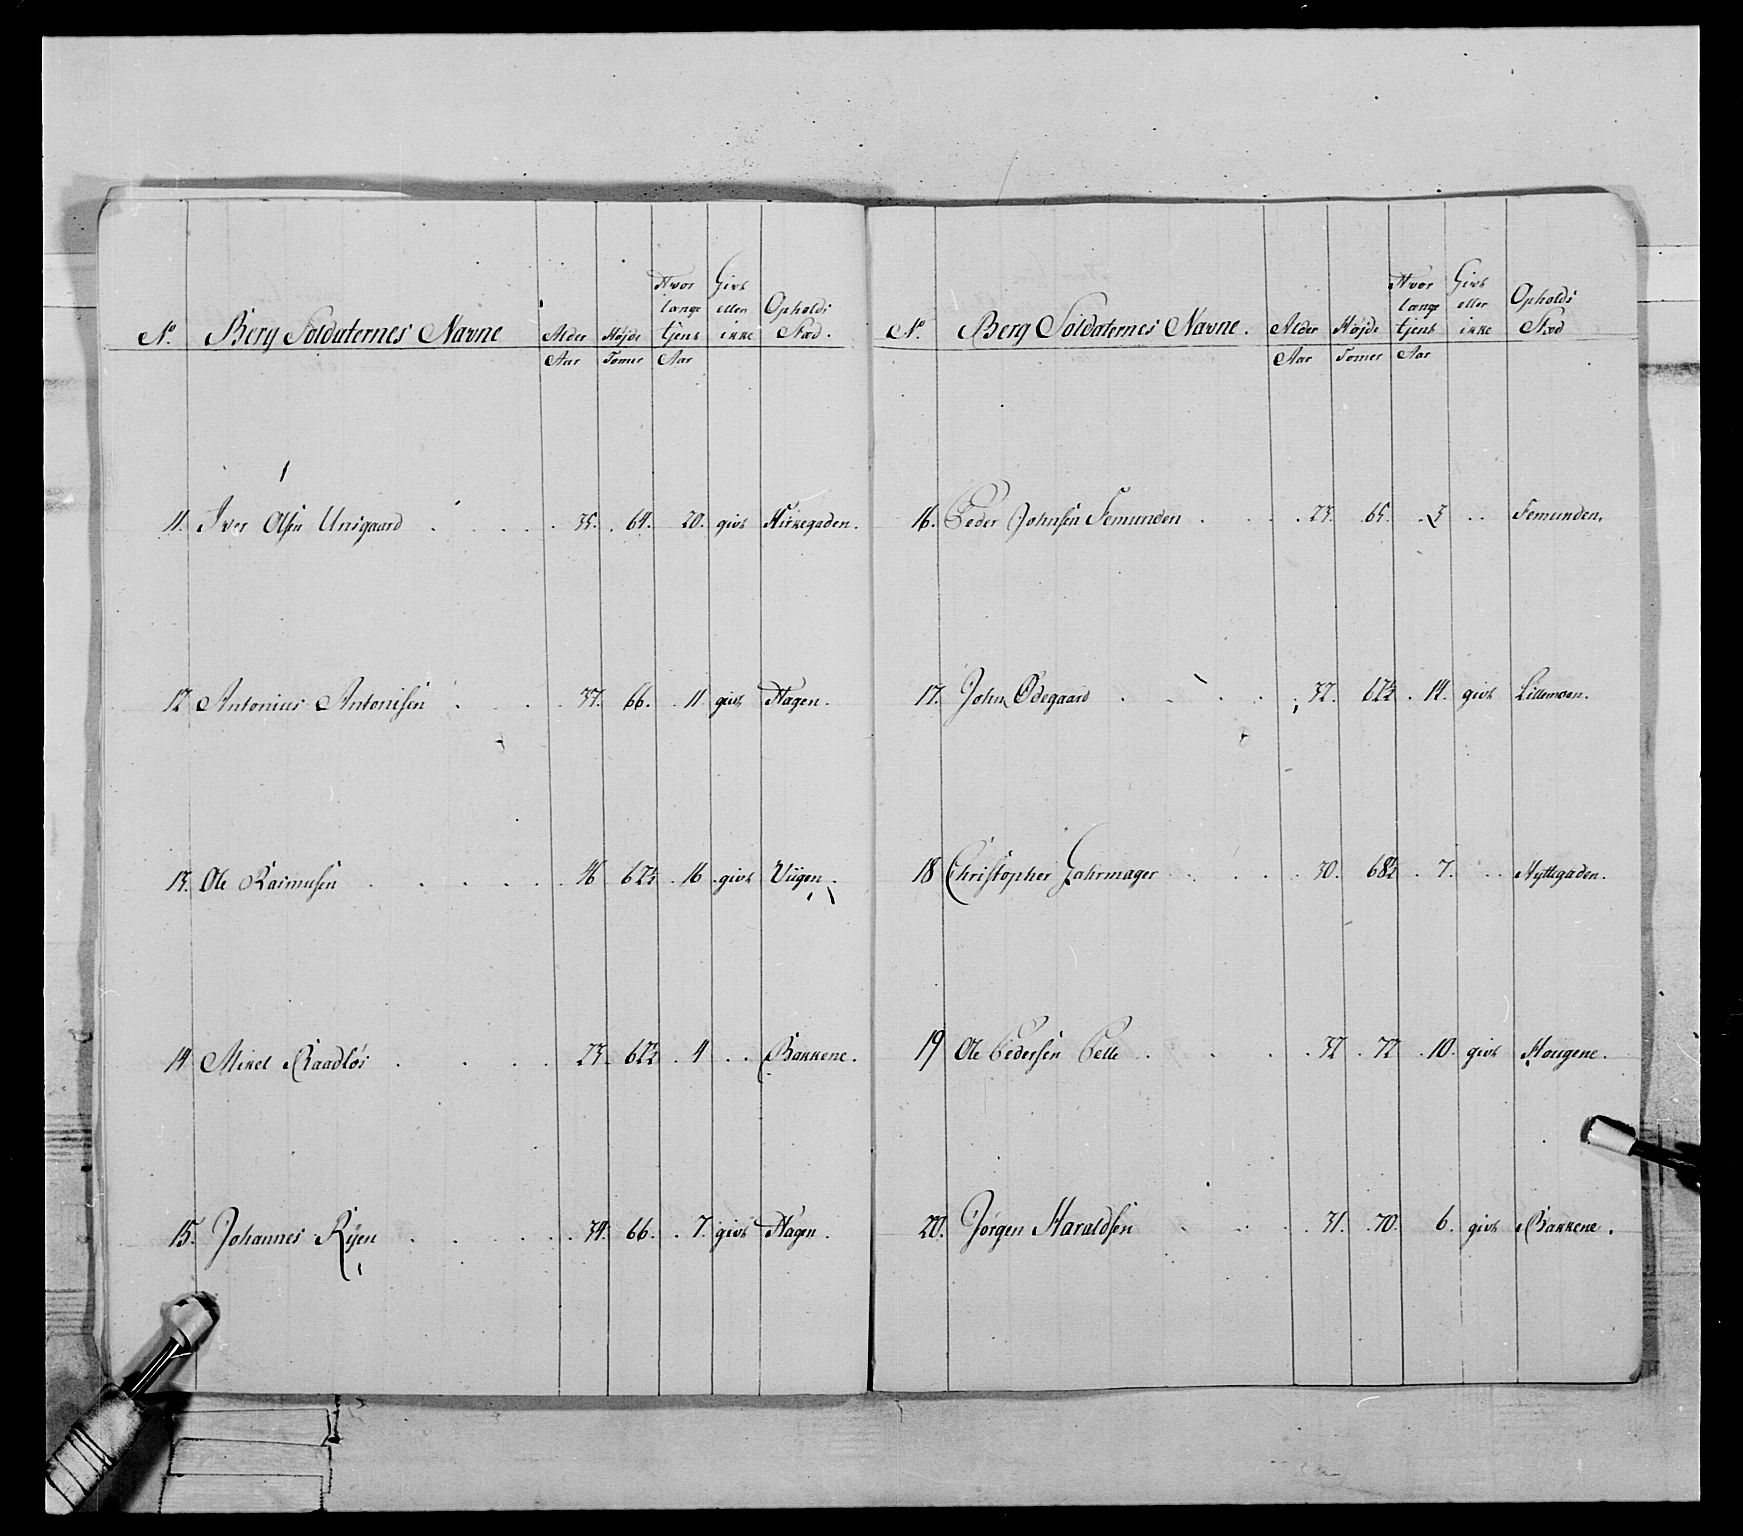 No. Berg Soldaternes Navne Alder Højde Hvor længe tjent Givt eller ikke Opholds Stæd.
Aar Tomer Aar
11. Iver Olsen Unsgaard 35. 64. 20. givt Kirkegaden.
12 Antonius Antonisen 37. 66. 11. givt Hagen.
13. Ole Rasmusen 46 67½ 16 givt Viigen.
14 Mikel Raadløs 23. 67½ 4 Bakkene.
15. Johannes Rÿen 34. 66. 7. givt Hagen.
No. Berg Soldaternes Navne. Alder Højde Hvor længe tjent Givt eller ikke Opholds Stæd
Aar Tomer Aar
16. Peder Johnsen Femunden 23. 65. 3 Femunden.
17. John Ødegaard 32. 67½ 14. givt Lillemoen.
18 Christopher Jahrmager 30. 68½ 7. Hyttegaden.
19 Ole Pedersen Pelle 32 72 10. givt Hougene.
20. Jørgen Haraldsen 31. 70. 6. givt Bakkene.